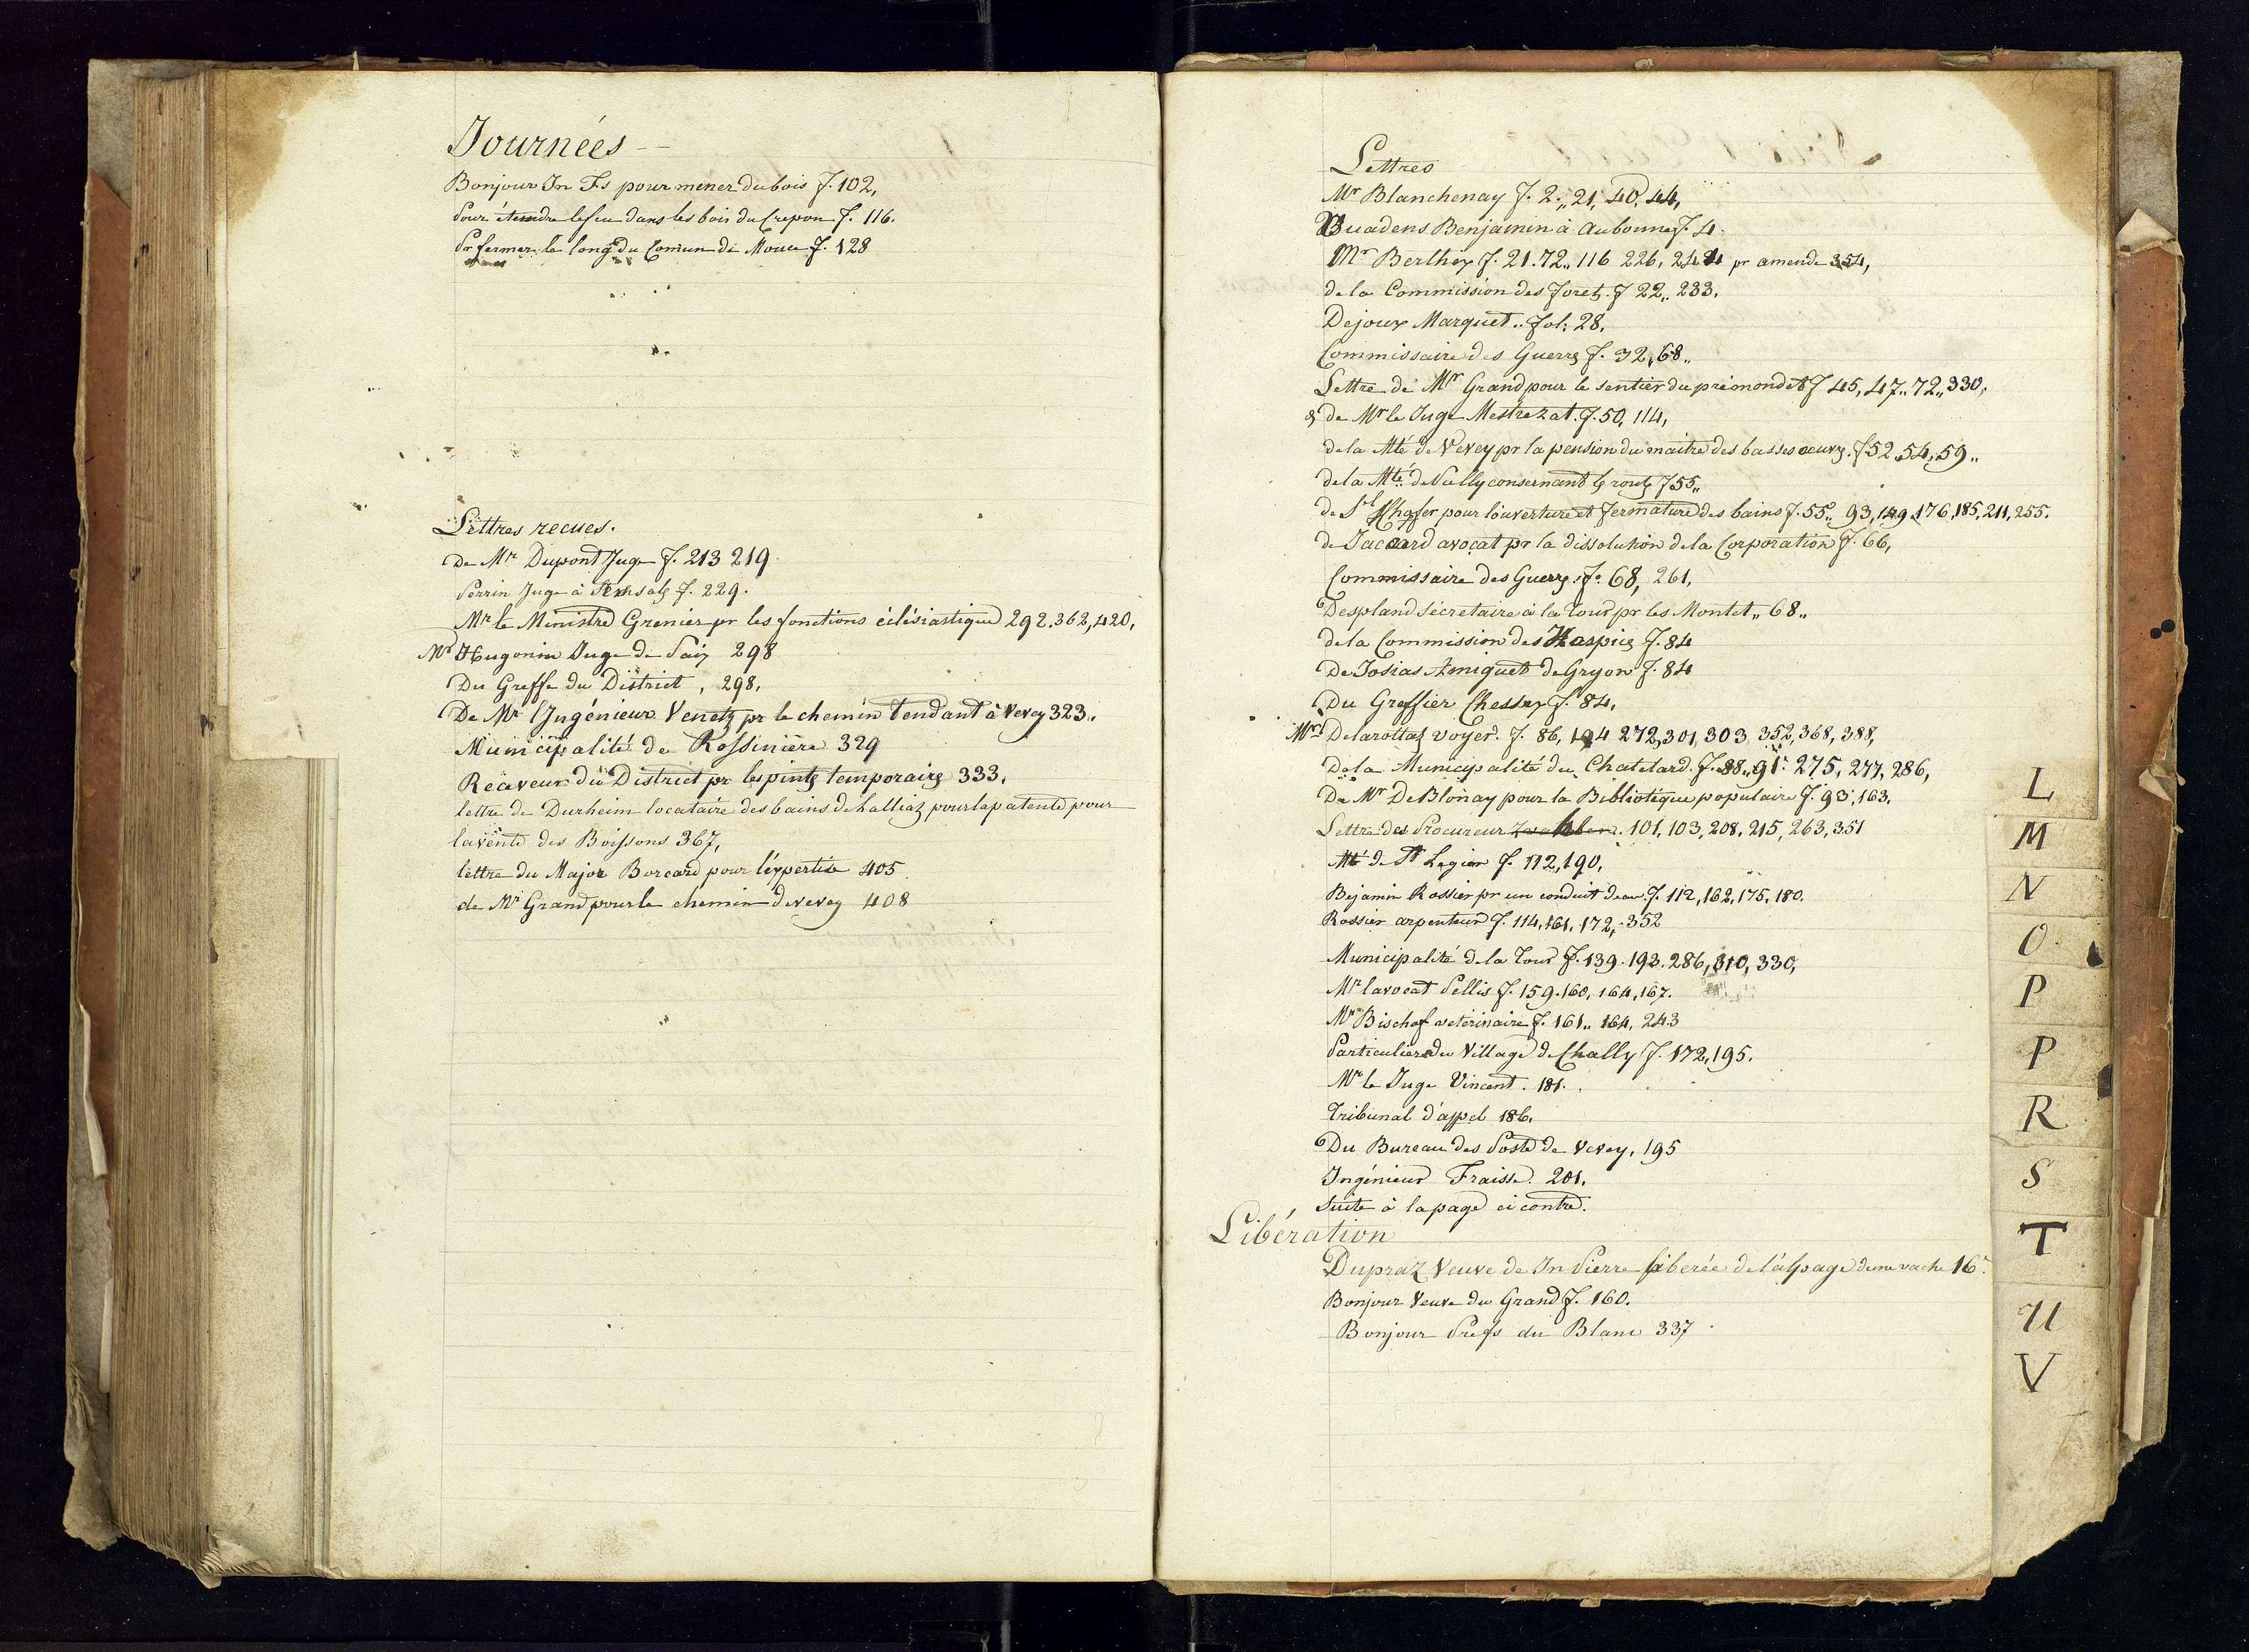 Journées
Bonjour Jn Fs pour mener du bois f. 102,
Pour éteindre le feu dans les bois du Crepon f. 116.
Pr fermer le long du Comun de Mouce f. 128
Lettres recues.
De Mr Dupont Juge f. 213 219
Perrin Juge à Semsals f. 229.
Mr le Ministre Grenier pr les fonctions éclésiastique 292. 362, 420,
Mr Hugonin Juge de Paix 298
Du Greffe du District, 298,
De Mr l'Ingénieur Venetz pr le chemin tendant à Vevey 323.
Municipalité de Rossinière 329
Receveur du District pr les pintes temporaires 333.
lettre de Durheim locataire des bains de halliaz pour la patente pour
la vente des Boissons 367,
lettre du Major Borcard pour l'éxpertise 405
de Mr Grand pour le chemin de vevey 408
Lettres
Mr Blanchenay f. 2., 21, 40, 44,
Buadens Benjamin à Aubonne f. 4.
Mr Berthex f. 21. 72,, 116 226, 244 pr amende 354,
de la Commission des forets f 22,, 233.
Dejoux Marquet.. fol: 28.
Commissaire des Guerres f. 32, 68,,
Lettre de Mr Grand pour le sentier du prémondet f 45, 47,, 72,, 330,
& de Mr le Juge Mestrezat f. 50, 114,
de la Mté de Vevey pr la pension du maitre des basses oeuvres. f 52, 54, 59,,
de la Mté de Nully consernant les routes f 55,,
de Sl Chafer pour l'ouverture et fermature des bains f. 55,, 93, 149, 176, 185, 211, 255.
de Jaccard avocat pr la dissolution de la Corporation f. 66,
Commissaire des Guerres f. 68, 261,
Despland sécretaire à la Tour pr les Montet,, 68,,
de la Commission des Hospices f. 84
De Josias Amiguet de Gryon f. 84
Du Greffier Chessex f. 84,
Mr Delarottaz voyer. f. 86, 194 272, 301, 303, 352, 368, 388,
De la Municipalité du Chatelard. f. 88,, 91. 275, 277, 286,
De Mr De Blonay pour la Bibliotèque populaire f. 93, 163,
Lettre des Procureur 101, 103, 208, 215, 263, 351
Mté de St Legier f. 112, 190,
Bejamin Rossier pr un conduit d'eau f. 112, 162, 175, 180.
Rossier arpenteur f. 114, 161, 172, 352
Municipalité de la Tour f. 139. 193. 286, 310, 330,
Mr l'avocat Pellis f. 159. 160, 164, 167.
Mr Bischof veterinaire f. 161,, 164, 243
Particuliers du Village de Chally f. 172, 195.
Mr le Juge Vincent. 181.
Tribunal d'appel 186,
Du Bureau des Poste de Vevey, 195
Ingénieur Fraisse. 201.
Suite à la page ci contre.
Libération
Dupraz Veuve de Jn Pierre libérée de l'alpage d'une vache 16.
Bonjour Veuve du Grand f. 160.
Bonjour du Blanc 337
L
M
N
O
P
P
R
S
T
U
V